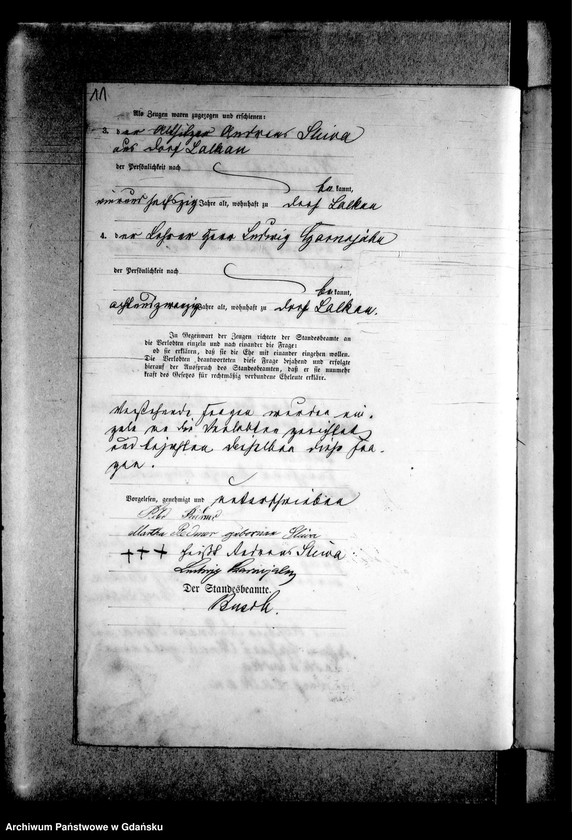 11
Als Zeugen waren zugezogen und erschienen:
3. der Altsitzer Andreas Sliwa
aus Dorf Lalkau
der Persönlichkeit nach
be kannt,
vierundsechszig Jahre alt, wohnhaft zu Dorf Lalkau
4. der Lehrer Herr Ludwig Czarnojahn
der Persönlichkeit nach
be kannt,
achtundzwanzig Jahre alt, wohnhaft zu Dorf Lalkau.
In Gegenwart der Zeugen richtete der Standesbeamte an
die Verlobten einzeln und nach einander die Frage:
ob sie erklären, daß sie die Ehe mit einander eingehen wollen.
Die Verlobten beantworteten diese Frage bejahend und erfolgte
hierauf der Ausspruch des Standesbeamten, daß er sie nunmehr
kraft des Gesetzes für rechtmäßig verbundene Eheleute erkläre.
Vorstehende Fragen wurden ein-
zeln an die Verlobten gerichtet
und bejahten dieselben diese Fra-
gen.
Vorgelesen, genehmigt und unterschrieben
Martha geborene Sliwa
+++ heißt Andreas Sliwa
Ludwig Czarnojahn
Der Standesbeamte.
Busch.
Archiwum Państwowe w Gdańsku